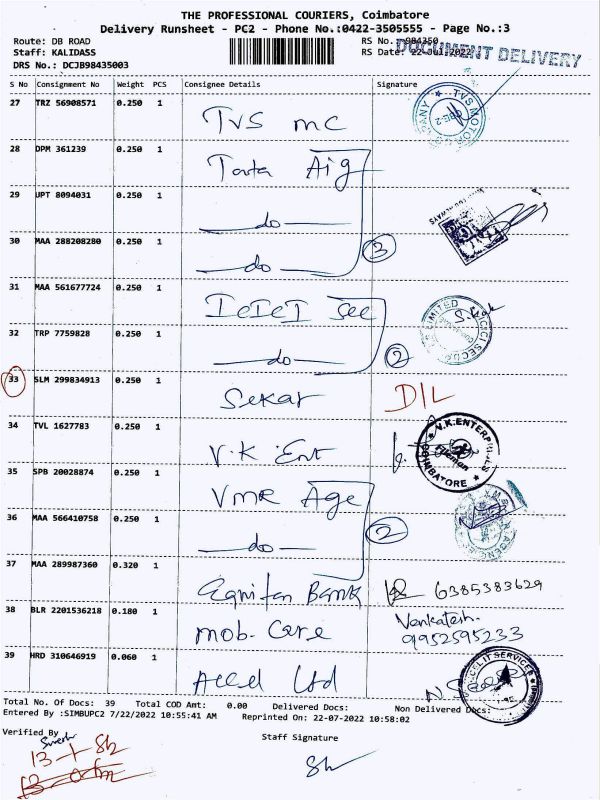 THE PROFESSIONAL COURIERS, Coimbatore
Delivery Runsheet - PC2 - Phone No.:0422-3505555 - Page No.:3
Route: DB ROAD
Staff: KALIDASS
DRS No.: DCJB98435003
RS No. 984350
RS Date: 22-Jul-2022
DOCUMENT DELIVERY
S No Consignment No Weight PCS Consignee Details Signature
27 TRZ 56908571 0.250 1 TVS mc
28 DPM 361239 0.250 1 Tata Aig
29 UPT 8094031 0.250 1 —do—
30 MAA 288208280 0.250 1 —do— 3
31 MAA 561677724 0.250 1 ICICI Sec
32 TRP 7759828 0.250 1 —do— 2
33 SLM 299834913 0.250 1 Sekar D/L
34 TVL 1627783 0.250 1 V.K Ent
V.K.ENTERPRISES
COIMBATORE
35 SPB 20028874 0.250 1 VMR Age
36 MAA 566410758 0.250 1 —do— 2
37 MAA 289987360 0.320 1 Equitas Bank 6385383629
38 BLR 2201536218 0.180 1 mob. Care Venkatesh. 9952595233
39 HRD 310646919 0.060 1 Accel Ltd
Total No. Of Docs: 39 Total COD Amt: 0.00 Delivered Docs: Non Delivered Docs:
Entered By :SIMBUPC2 7/22/2022 10:55:41 AM Reprinted On: 22-07-2022 10:58:02
Verified By
Suresh
Staff Signature